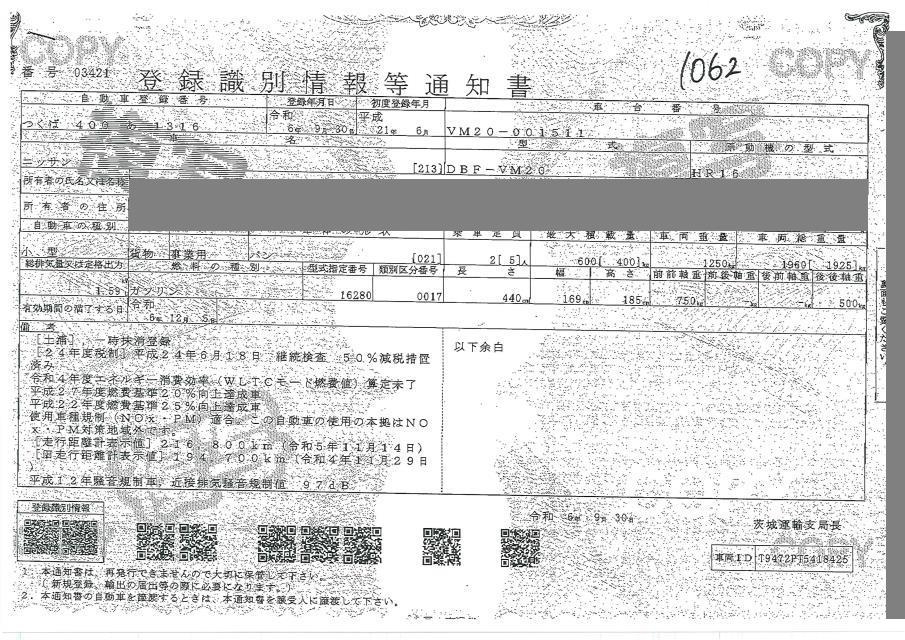 COPY
COPY
番号 03421
登録識別情報等通知書
1062
自動車登録番号
登録年月日
初度登録年月
車台番号
つくば 400 あ 1316
令和
6年 9月 30日
平成
21年 6月
VM20-001511
車名
型式
原動機の型式
ニッサン
[213]
DBF-VM20
HR16
所有者の氏名又は名称
所有者の住所
自動車の種別
乗車定員
最大積載量
車両重量
車両総重量
小型
貨物
事業用
バン
[021]
2[ 5]人
600[ 400]kg
1250kg
1960[ 1925]kg
総排気量又は定格出力
燃料の種別
型式指定番号
類別区分番号
長さ
幅
高さ
前前軸重
前後軸重
後前軸重
後後軸重
1.59
ガソリン
16280
0017
440cm
169cm
185cm
750kg
-kg
-kg
500kg
有効期間の満了する日
令和
6年 12月 5日
備考
[土浦] 一時抹消登録
[24年度税制] 平成24年6月18日 継続検査 50%減税措置
済み
令和4年度エネルギー消費効率(WLTCモード燃費値)算定未了
平成27年度燃費基準20%向上達成車
平成22年度燃費基準25%向上達成車
使用車種規制(NOx・PM)適合。この自動車の使用の本拠はNO
x・PM対策地域外です。
[走行距離計表示値] 216,800km(令和5年11月14日)
[旧走行距離計表示値] 194,700km(令和4年11月29日
)
平成12年騒音規制車、近接排気騒音規制値 97dB
以下余白
登録識別情報
令和 6年 9月 30日
茨城運輸支局長
車両ID T9472PT5418425
1. 本通知書は、再発行できませんので大切に保管して下さい。
(新規登録、輸出の届出等の際に必要になります。)
2. 本通知書の自動車を譲渡するときは、本通知書を譲受人に譲渡して下さい。